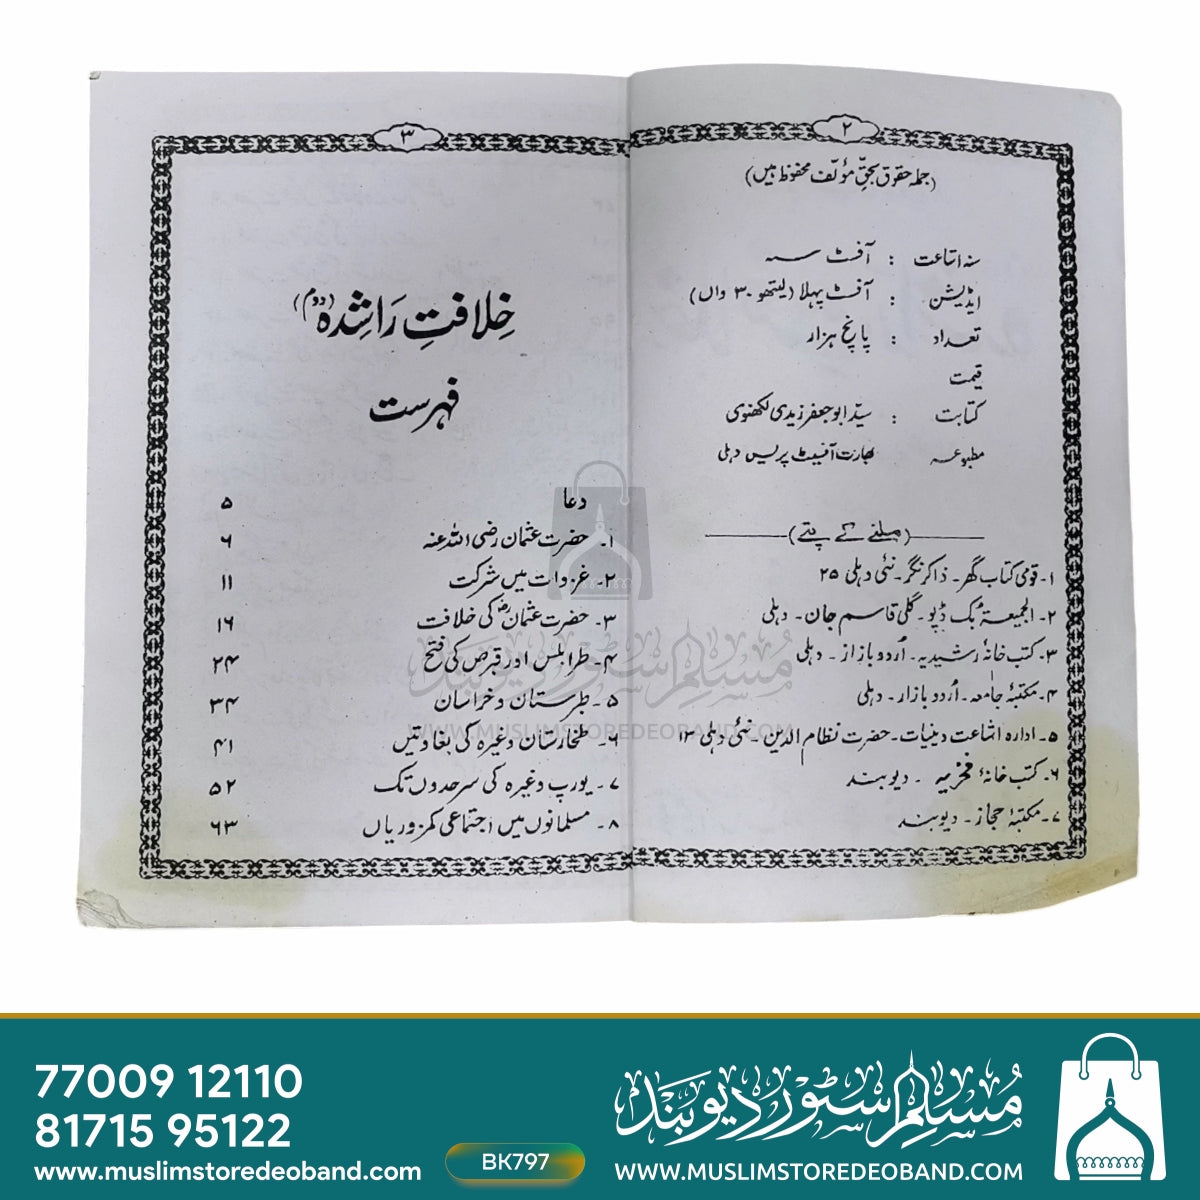 ۲
(جملہ حقوق بحقِ مؤلّف محفوظ ہیں)
سنہ اشاعت : آفسٹ سنہ
ایڈیشن : آفسٹ پہلا (لیتھو ۳۰ واں)
تعداد : پانچ ہزار
قیمت
کتابت : سیّد ابو جعفر زیدی لکھنوی
مطبوعہ بھارت آفسیٹ پریس دہلی
(ملنے کے پتے)
۱- قومی کتاب گھر- ذاکر نگر- نئی دہلی ۲۵
۲- الجمیعۃ بک ڈپو- گلی قاسم جان- دہلی
۳- کتب خانہ رشیدیہ- اُردو بازار- دہلی
۴- مکتبہ جامعہ- اُردو بازار- دہلی
۵- ادارہ اشاعت دینیات- حضرت نظام الدین- نئی دہلی ۱۳
۶- کتب خانۂ فخریہ - دیوبند
۷- مکتبۂ حجاز- دیوبند
۳
خِلافتِ رَاشِدہ (دوم)
فہرست
دعا ۵
۱- حضرت عثمان رضی اللہ عنہ ۶
۲- غزوات میں شرکت ۱۱
۳- حضرت عثمانؓ کی خلافت ۱۶
۴- طرابلس اور قبرص کی فتح ۲۴
۵- طبرستان و خراسان ۳۴
۶- طخارستان وغیرہ کی بغاوتیں ۴۱
۷- یورپ وغیرہ کی سرحدوں تک ۵۲
۸- مسلمانوں میں اجتماعی کمزوریاں ۶۳
مسلم سٹور دیوبند
WWW.MUSLIMSTOREDEOBAND.COM
77009 12110
81715 95122
www.muslimstoredeoband.com
BK797
مسلم سٹور دیوبند
WWW.MUSLIMSTOREDEOBAND.COM